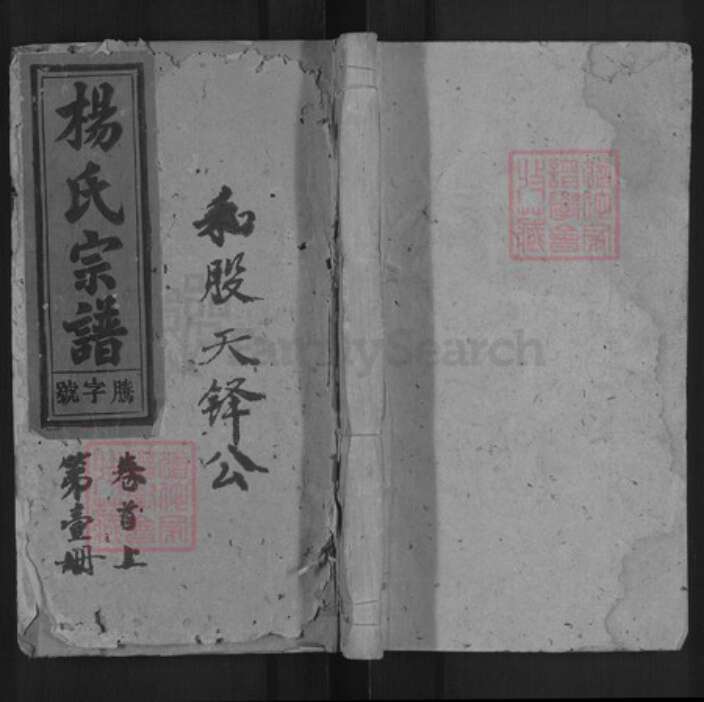 楊氏宗譜
騰字號
和股天铎公
卷首上
第壹册
FamilySearch